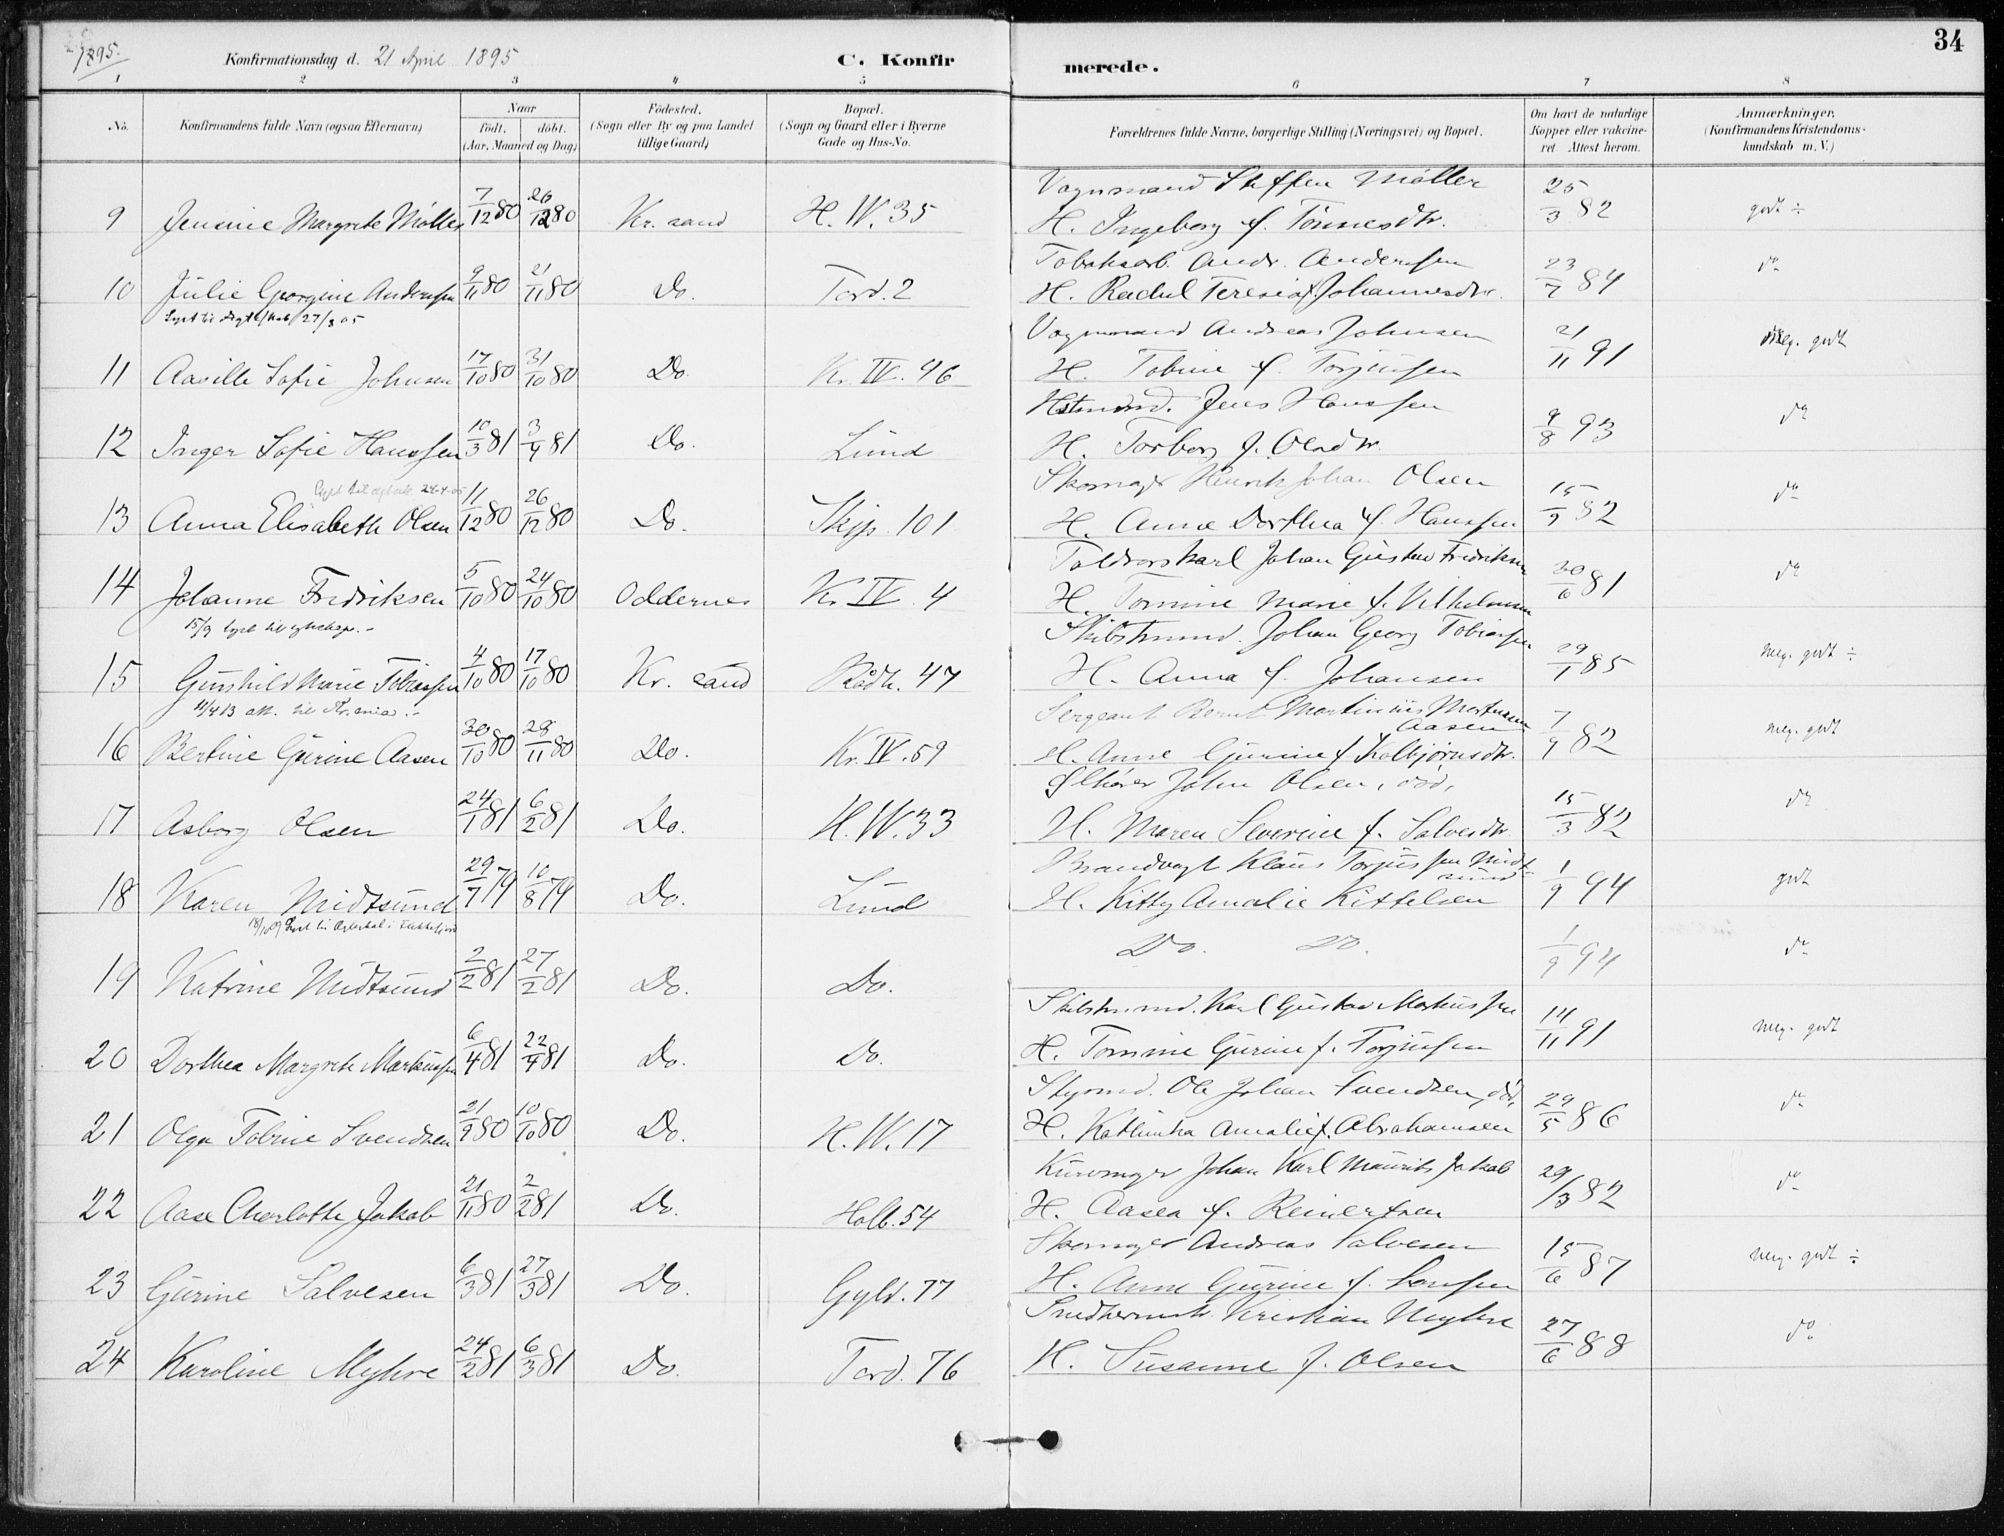 1895.
Konfirmationsdag d. 21 April 1895
C. Konfirmerede.
34
1 2 3 4 5 6 7 8
No.
Konfirmandens fulde Navn (ogsaa Efternavn)
Naar
födt. döbt.
(Aar, Maaned og Dag)
Födested.
(Sogn eller By og paa Landet
tillige Gaard)
Bopæl.
(Sogn og Gaard eller i Byerne
Gade og Hus-No.
Forældrenes fulde Navne, borgerlige Stilling (Næringsvei) og Bopæl.
Om havt de naturlige
Kopper eller vakcine-
ret Attest herom.
Anmærkninger,
(Konfirmandens Kristendoms-
kundskab m. V.)
Vognmand Steffen Møller
9 Jensine Margrete Møller 7/12 80 26/12 80 Kr. sand H. W. 35 H. Ingeborg f. Tönnesdtr. 25/3 82 godt ÷
Tobaksarb. Andr. Andersen
10 Julie Georgine Andersen 9/11 80 21/11 80 Do. Tord. 2 H. Rachel Teresia f. Johannesdtr. 23/7 84 do
27/3 05
Vognmand Andreas Johnsen
11 Aasille Sofie Johnsen 17/10 80 31/10 80 Do. Kr. IV. 46 H. Tobine f. Torjusen 21/11 91 meg. godt
Jens Hanssen
12 Inger Sofie Hanssen 10/3 81 3/4 81 Do. Lund H. Torborg f. Olsdtr. 9/8 93 do
24-4-05
Skomager Henrik Johan Olsen
13 Anna Elisabeth Olsen 11/12 80 26/12 80 Do. Skip. 101 H. Anne Dorthea f. Hanssen 15/9 82 do
Toldrorskarl Johan Gustav Fredriksen
14 Johanne Fredriksen 5/10 80 24/10 80 Oddernes Kr. IV. 4 H. Tomine Marie f. Vilhelmsen 20/6 81 do
15/9 lyst til egteskap. -
Skibstmmd. Johan Georg Tobiassen
15 Gunhild Marie Tobiassen 4/10 80 17/10 80 Kr. sand Rådh. 47 H. Anna f. Johansen 29/1 85 meg. godt ÷
11/4 13 att. til Kr.ania. -
Sergeant Bernt Martinius Mortensen
Aasen
16 Bertine Gurine Aasen 30/10 80 28/11 80 Do. Kr. IV. 59 H. Anne Gurine f. Kolbjörnsdtr. 7/9 82 meg. godt
John Olsen, död,
17 Asborg Olsen 24/1 81 6/2 81 Do. H. W. 33 H. Maren Severine f. Salvesdtr. 15/3 82 do
Brandvagt Klaus Torjussen Midt-
sund
18 Karen Midtsund 29/7 79 10/8 79 Do. Lund H. Kitty Amalie Kittelsen 1/9 94 godt
19 Katrine Midtsund 2/2 81 27/2 81 Do. Do. Do. Do. 1/9 94 do
Skibstmmd. Karl Gustav Markussen
20 Dorthea Margrete Markussen 6/4 81 22/4 81 Do. Do. H. Tomine Gurine f. Torjusen 14/11 91 meg. godt
Styrmd. Ole Johan Svendsen, död,
21 Olga Tobine Svendsen 21/9 80 10/10 80 Do. H. W. 17 H. Kathinka Amalie f. Abrahamsen 29/5 86 do
Kurvmager Johan Karl Maurits Jakob
22 Aase Charlotte Jakob 21/11 80 2/2 81 Do. Holb. 54 H. Aasea f. Reinertsen 29/3 82 do
Skomager Andreas Salvesen
23 Gurine Salvesen 6/3 81 27/3 81 Do. Gyld. 77 H. Anne Gurine f. Larssen 15/6 87 meg. godt ÷
Kristian Myhre
24 Karoline Myhre 24/2 81 6/3 81 Do. Tord. 76 H. Susanne f. Olsen 27/6 88 do